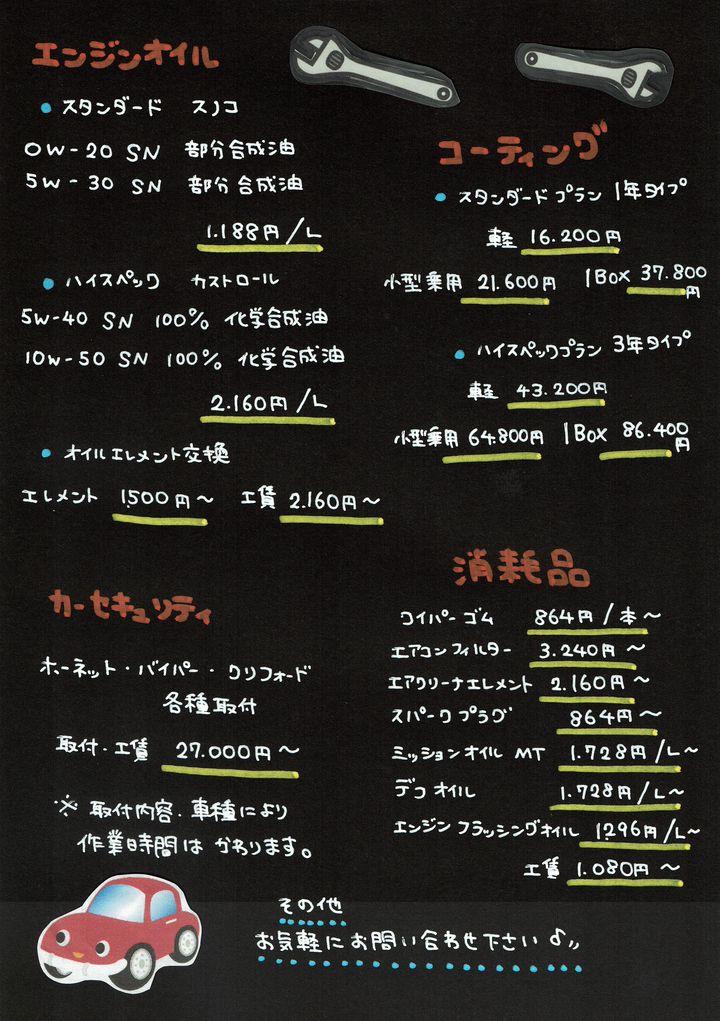 エンジンオイル
• スタンダード スノコ
0W-20 SN 部分合成油
5W-30 SN 部分合成油
1.188円/L
• ハイスペック カストロール
5W-40 SN 100% 化学合成油
10W-50 SN 100% 化学合成油
2.160円/L
• オイルエレメント交換
エレメント 1500円〜 工賃 2.160円〜
コーティング
• スタンダードプラン 1年タイプ
軽 16.200円
小型乗用 21.600円 1BOX 37.800円
• ハイスペックプラン 3年タイプ
軽 43.200円
小型乗用 64.800円 1BOX 86.400円
カーセキュリティ
ホーネット・バイパー・クリフォード
各種取付
取付・工賃 27.000円〜
※ 取付内容・車種により
作業時間は かわります。
消耗品
ワイパーゴム 864円/本〜
エアコンフィルター 3.240円〜
エアクリーナエレメント 2.160円〜
スパークプラグ 864円〜
ミッションオイル MT 1.728円/L〜
デフオイル 1.728円/L〜
エンジンフラッシングオイル 1296円/L〜
工賃 1.080円〜
その他
お気軽にお問い合わせ下さい♪